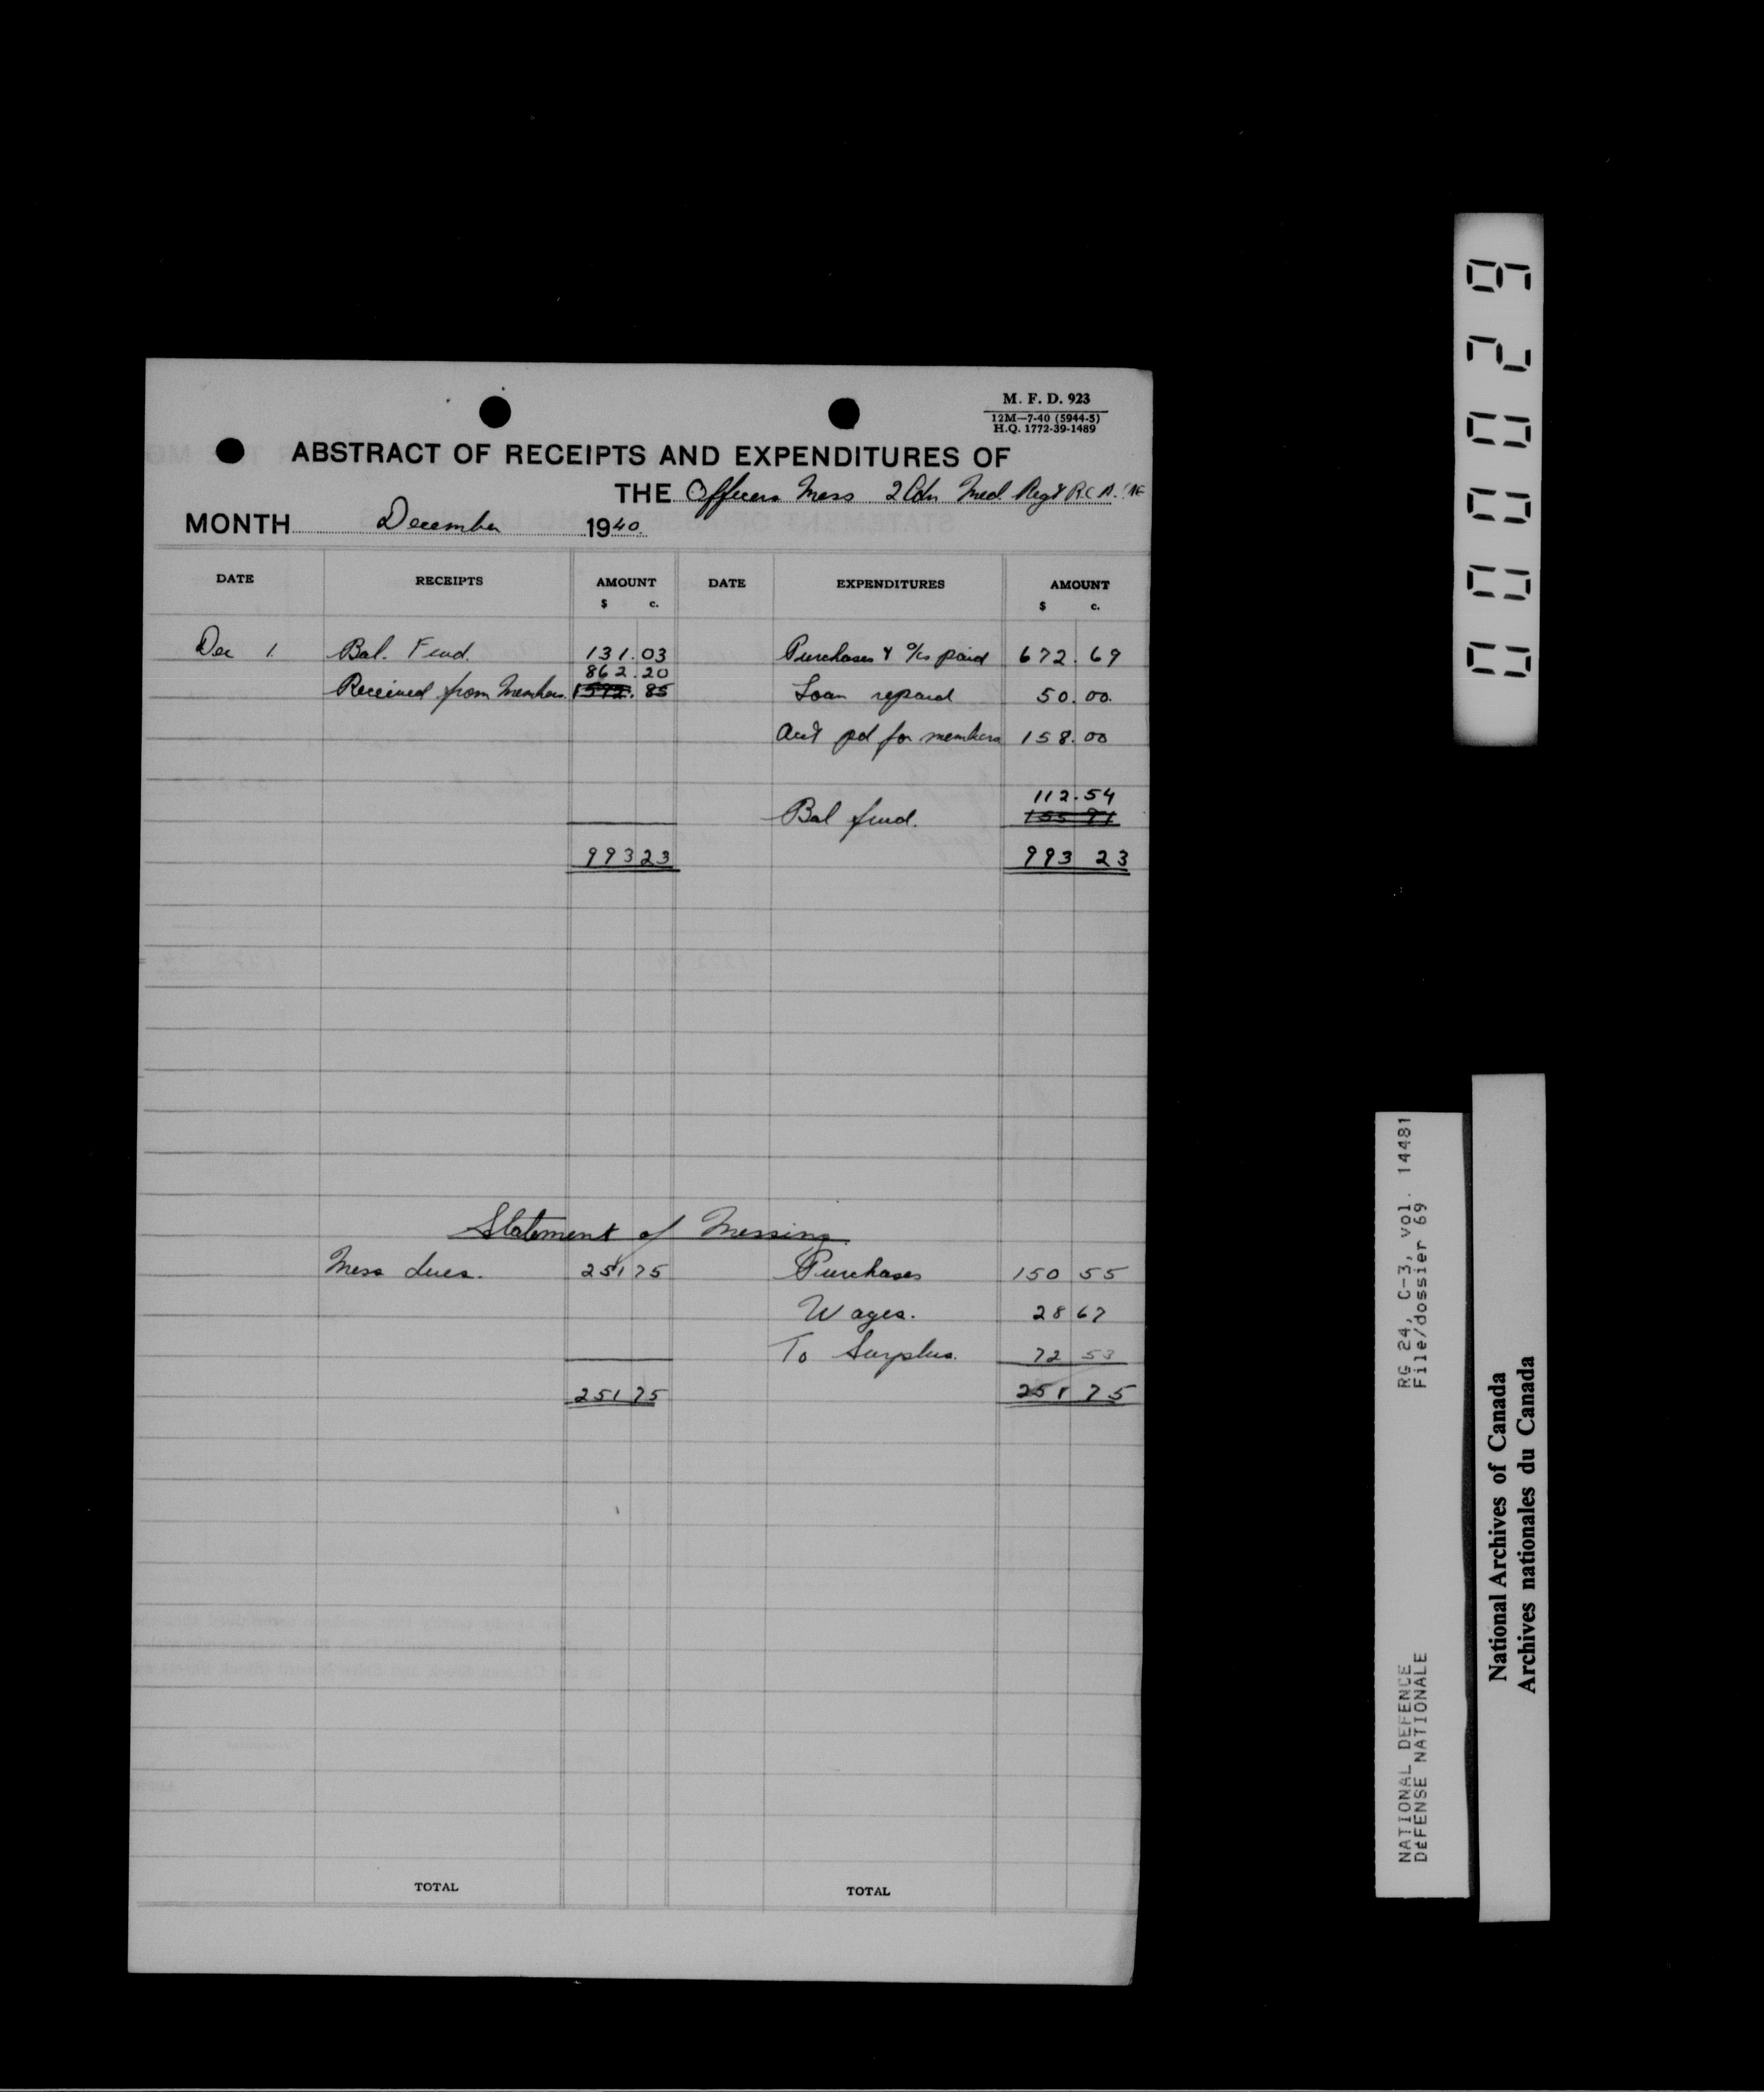 M. F. D. 923
12M—7-40 (5944-5)
H.Q. 1772-39-1489
ABSTRACT OF RECEIPTS AND EXPENDITURES OF
THE Officers Mess 2 Cdn Med Regt R.C.A.
MONTH December 1940.
DATE RECEIPTS AMOUNT DATE EXPENDITURES AMOUNT
$ c. $ c.
Dec 1. Bal. Fwd. 131.03 Purchases & a/cs paid 672.69
862.20
Received from Members. Loan repaid 50.00.
Acct pd for members 158.00
112.54
Bal fwd.
993 23 993 23
Statement of Messing.
Mess dues. 251 75 Purchases 150 55
Wages. 28 67
To Surplus. 72 53
251 75 251 75
TOTAL TOTAL
000029
RG 24, C-3, vol. 14481
File/dossier 69
NATIONAL DEFENCE
DÉFENSE NATIONALE
National Archives of Canada
Archives nationales du Canada